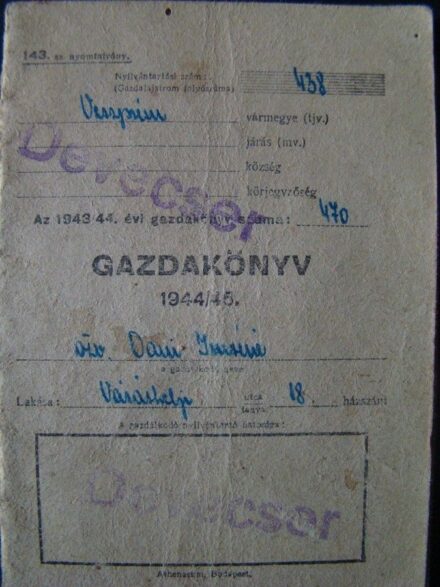 143. sz. nyomtatvány.
Nyilvántartási szám:
(Gazdalajstrom folyószáma) 438
Veszprém vármegye (tjv.)
Devecser
járás (mv.)
község
körjegyzőség
Az 1943/44. évi gazdakönyv száma: 470
GAZDAKÖNYV
1944/45.
özv. Dani Imréné
a gazdálkodó neve
Lakása: Vásárhely utca tanya 18. házszám
A gazdálkodó nyilvántartó hatósága:
Devecser
Athenaeum, Budapest.